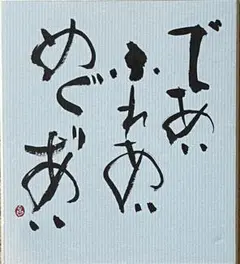 であい
ふれあい
めぐりあい